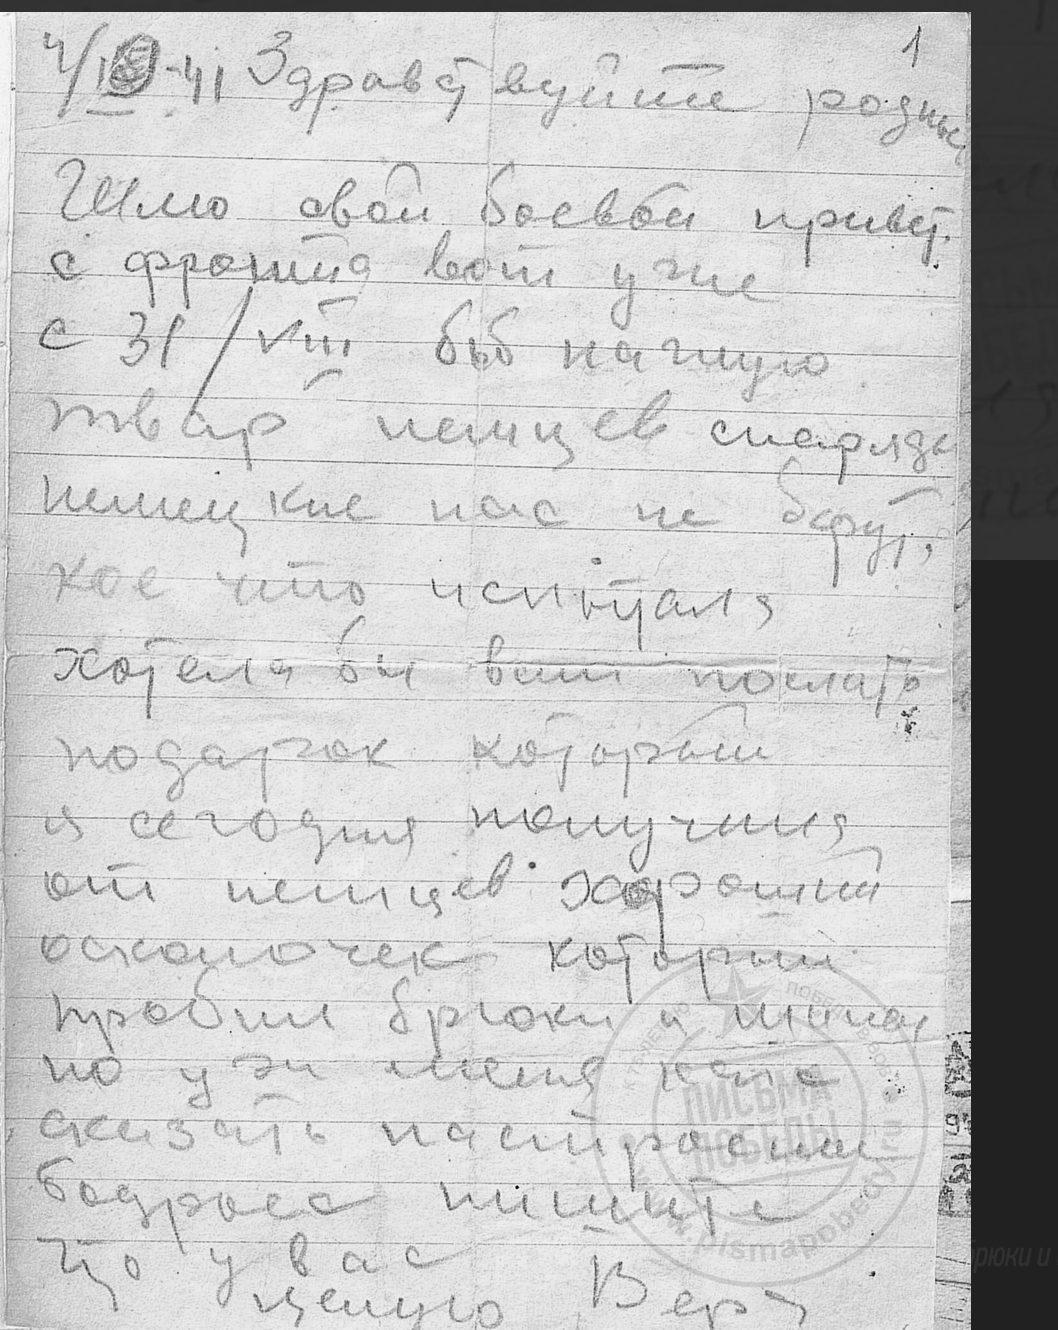 1
4/IX-41 Здравствуйте родные
Шлю свой боевой привет
с фронта вот уже
с 31/VIII бъб нагную
твар немцев снаряды
немецкие нас не берут,
кое что испытала
хотела бы вам послать
подарок который
я сегодня получила
от немцев хороший
осколочек который
пробил брюки и
но у меня
сказать настроение
бодрое пишите
что у вас
целую Вера
ПИСЬМА
ПОБЕДЫ
www.pismapobedy.ru
брюки и